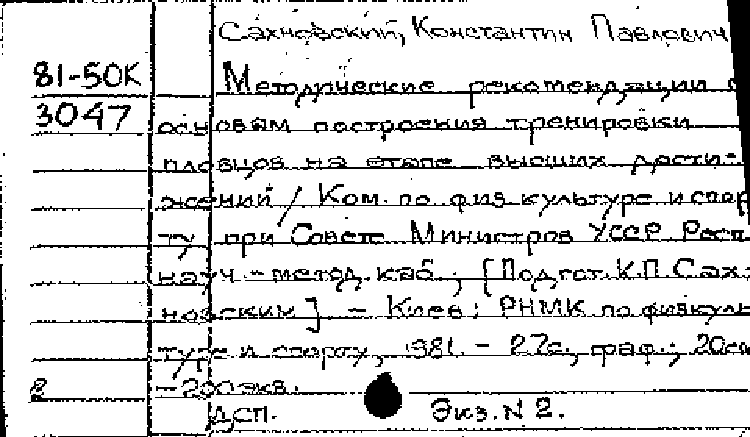 Сахновский, Константин Павлович
81-50К Методические рекомендации
3047 основам построения тренировки
пловцов на этапе высших дости-
жений / Ком. по физ культуре и спор
ту при Совете Министров УССР. Респ.
науч.-метод. каб.; [Подгот. К.П. Сах-
новским] - Киев: РНМК по физкуль
туре и спорту, 1981. - 27с.; граф.; 20см
2 - 200 экз.
ДСП. Экз. N 2.